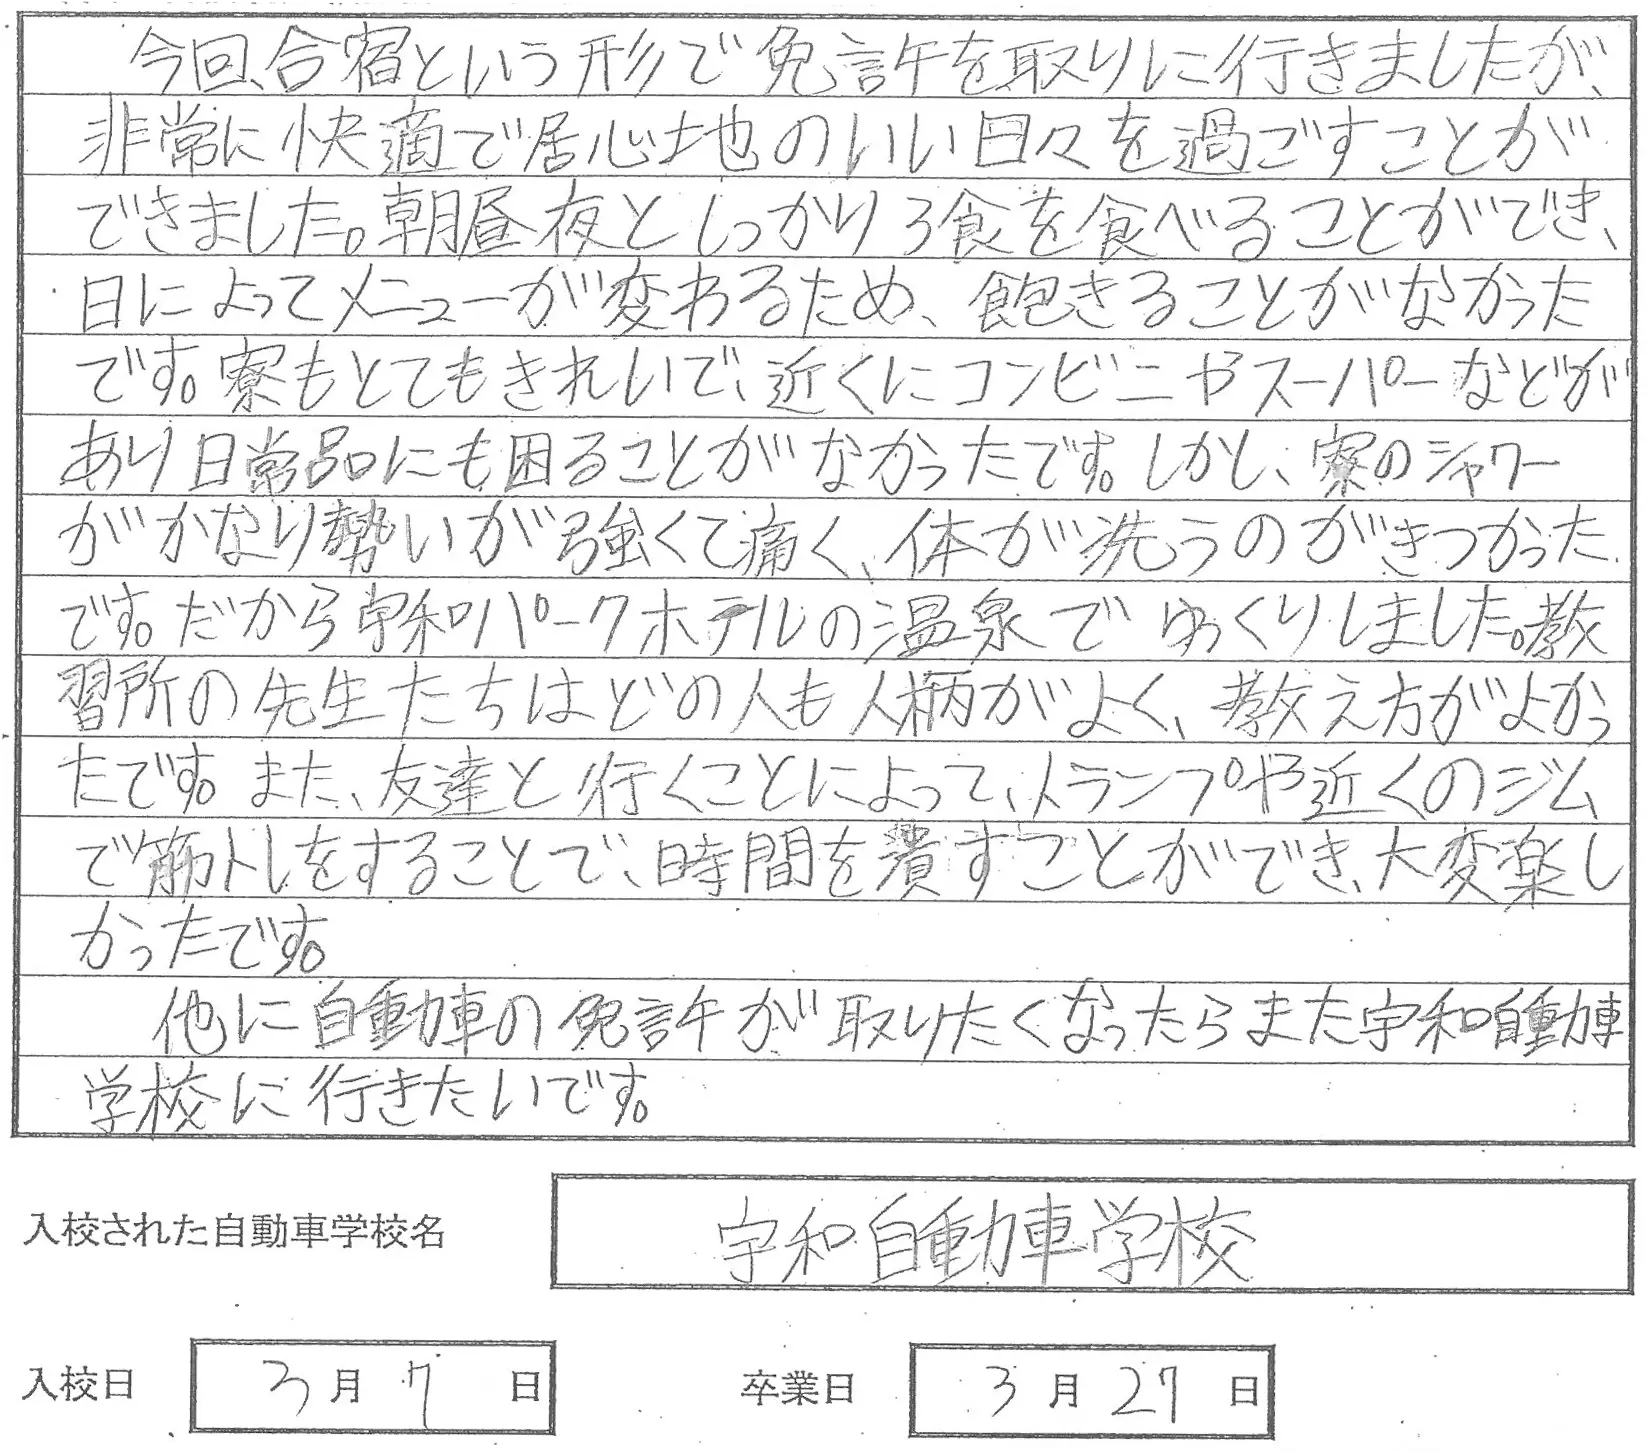 今回、合宿という形で免許を取りに行きましたが、
非常に快適で居心地のいい日々を過ごすことが
できました。朝昼夜としっかり3食を食べることができ、
日によってメニューが変わるため、飽きることがなかった
です。寮もとてもきれいで、近くにコンビニやスーパーなどが
あり日常品にも困ることがなかったです。しかし、寮のシャワー
がかなり勢いが強くて痛く、体が洗うのがきつかった
です。だから宇和パークホテルの温泉でゆっくりしました。教
習所の先生たちはどの人も人柄がよく、教え方がよかっ
たです。また、友達と行くことによって、トランプや近くのジム
で筋トレをすることで、時間を潰すことができ、大変楽し
かったです。
他に自動車の免許が取りたくなったらまた宇和自動車
学校に行きたいです。
入校された自動車学校名 宇和自動車学校
入校日 3月7日 卒業日 3月27日